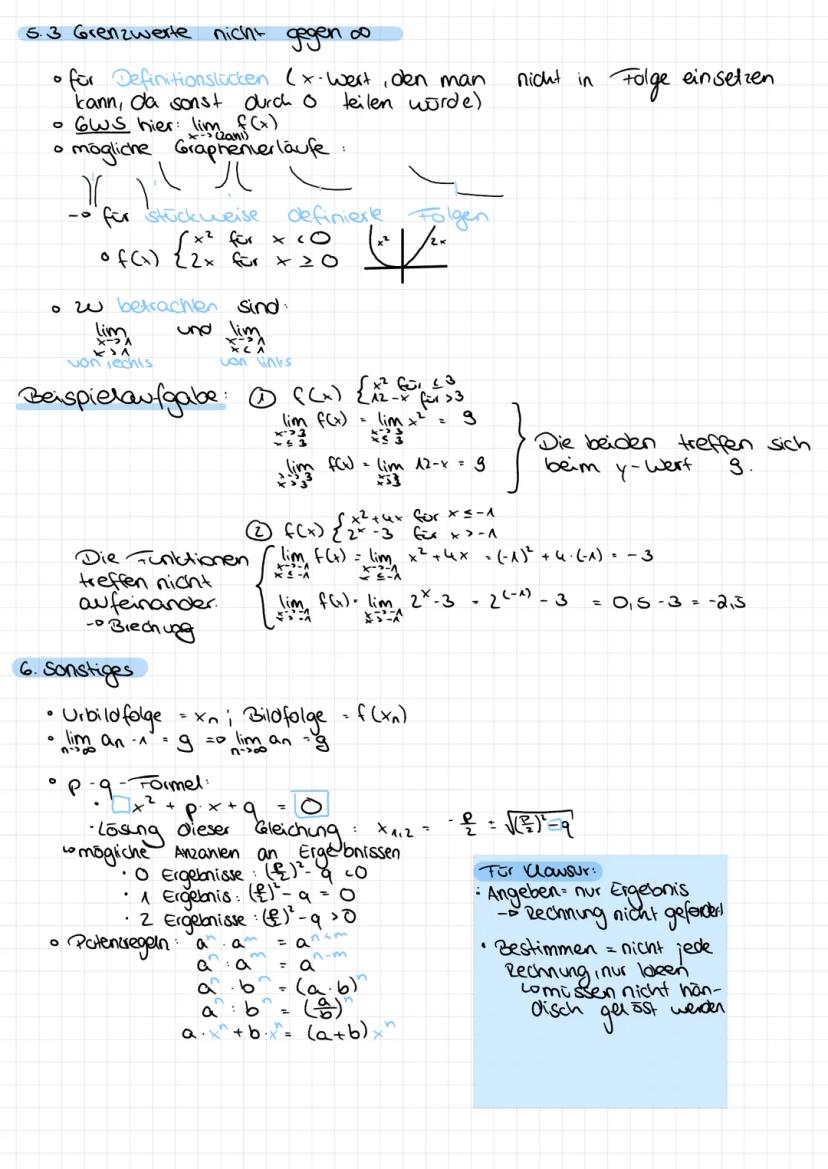 5.3 Grenzwerte nicht gegen ∞
• für Definitionslücken (x-Wert, den man nicht in Folge einsetzen
kann, da sonst durch 0 teilen würde)
• GWS hier: lim f(x)
x→(Zahl)
• mögliche Graphenverläufe:
→ für stückweise definierte Folgen
• f(x) { x² für x < 0
2x für x ≥ 0
x² 2x
• zu betrachten sind:
lim und lim
x→1 x→1
x>1 x<1
von rechts von links
Beispielaufgabe: ① f(x) { x² für ≤3
12-x für >3
lim f(x) = lim x² = 9
x→3 x→3
x≤3 x≤3
lim f(x) = lim 12-x = 9
x→3 x→3
x>3 x>3
Die beiden treffen sich
beim y-Wert 9.
② f(x) { x²+4x für x≤-1
2^x-3 für x>-1
Die Funktionen
treffen nicht
aufeinander.
→ Brechnung
lim f(x) = lim x²+4x = (-1)² + 4·(-1) = -3
x→-1 x→-1
x≤-1 x≤-1
lim f(x) = lim 2^x-3 = 2^(-1) - 3 = 0,5-3 = -2,5
x→-1 x→-1
x>-1 x>-1
6. Sonstiges
• Urbildfolge = xn ; Bildfolge = f(xn)
• lim an-1 = g => lim an = g
n→∞ n→∞
• p-q-Formel:
• □x² + p·x + q = 0
• Lösung dieser Gleichung: x1,2 = -p/2 ± √((p/2)²-q)
↳ mögliche Anzahlen an Ergebnissen
• 0 Ergebnisse: (p/2)²-q <0
• 1 Ergebnis: (p/2)²-q = 0
• 2 Ergebnisse: (p/2)²-q >0
• Potenzregeln: a^n · a^m = a^(n+m)
a^n : a^m = a^(n-m)
a^n · b^n = (a·b)^n
a^n : b^n = (a/b)^n
a·x^n + b·x^n = (a+b) x^n
Für Klausur:
• Angeben = nur Ergebnis
→ Rechnung nicht gefordert
• Bestimmen = nicht jede
Rechnung, nur Ideen
↳ müssen nicht hän-
disch gelöst werden